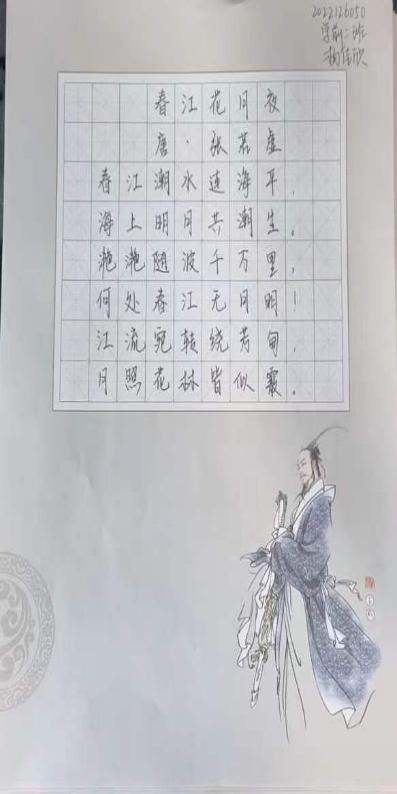 2022126050
学前二班
杨佳欣
春江花月夜
唐·张若虚
春江潮水连海平,
海上明月共潮生。
滟滟随波千万里,
何处春江无月明!
江流宛转绕芳甸,
月照花林皆似霰。